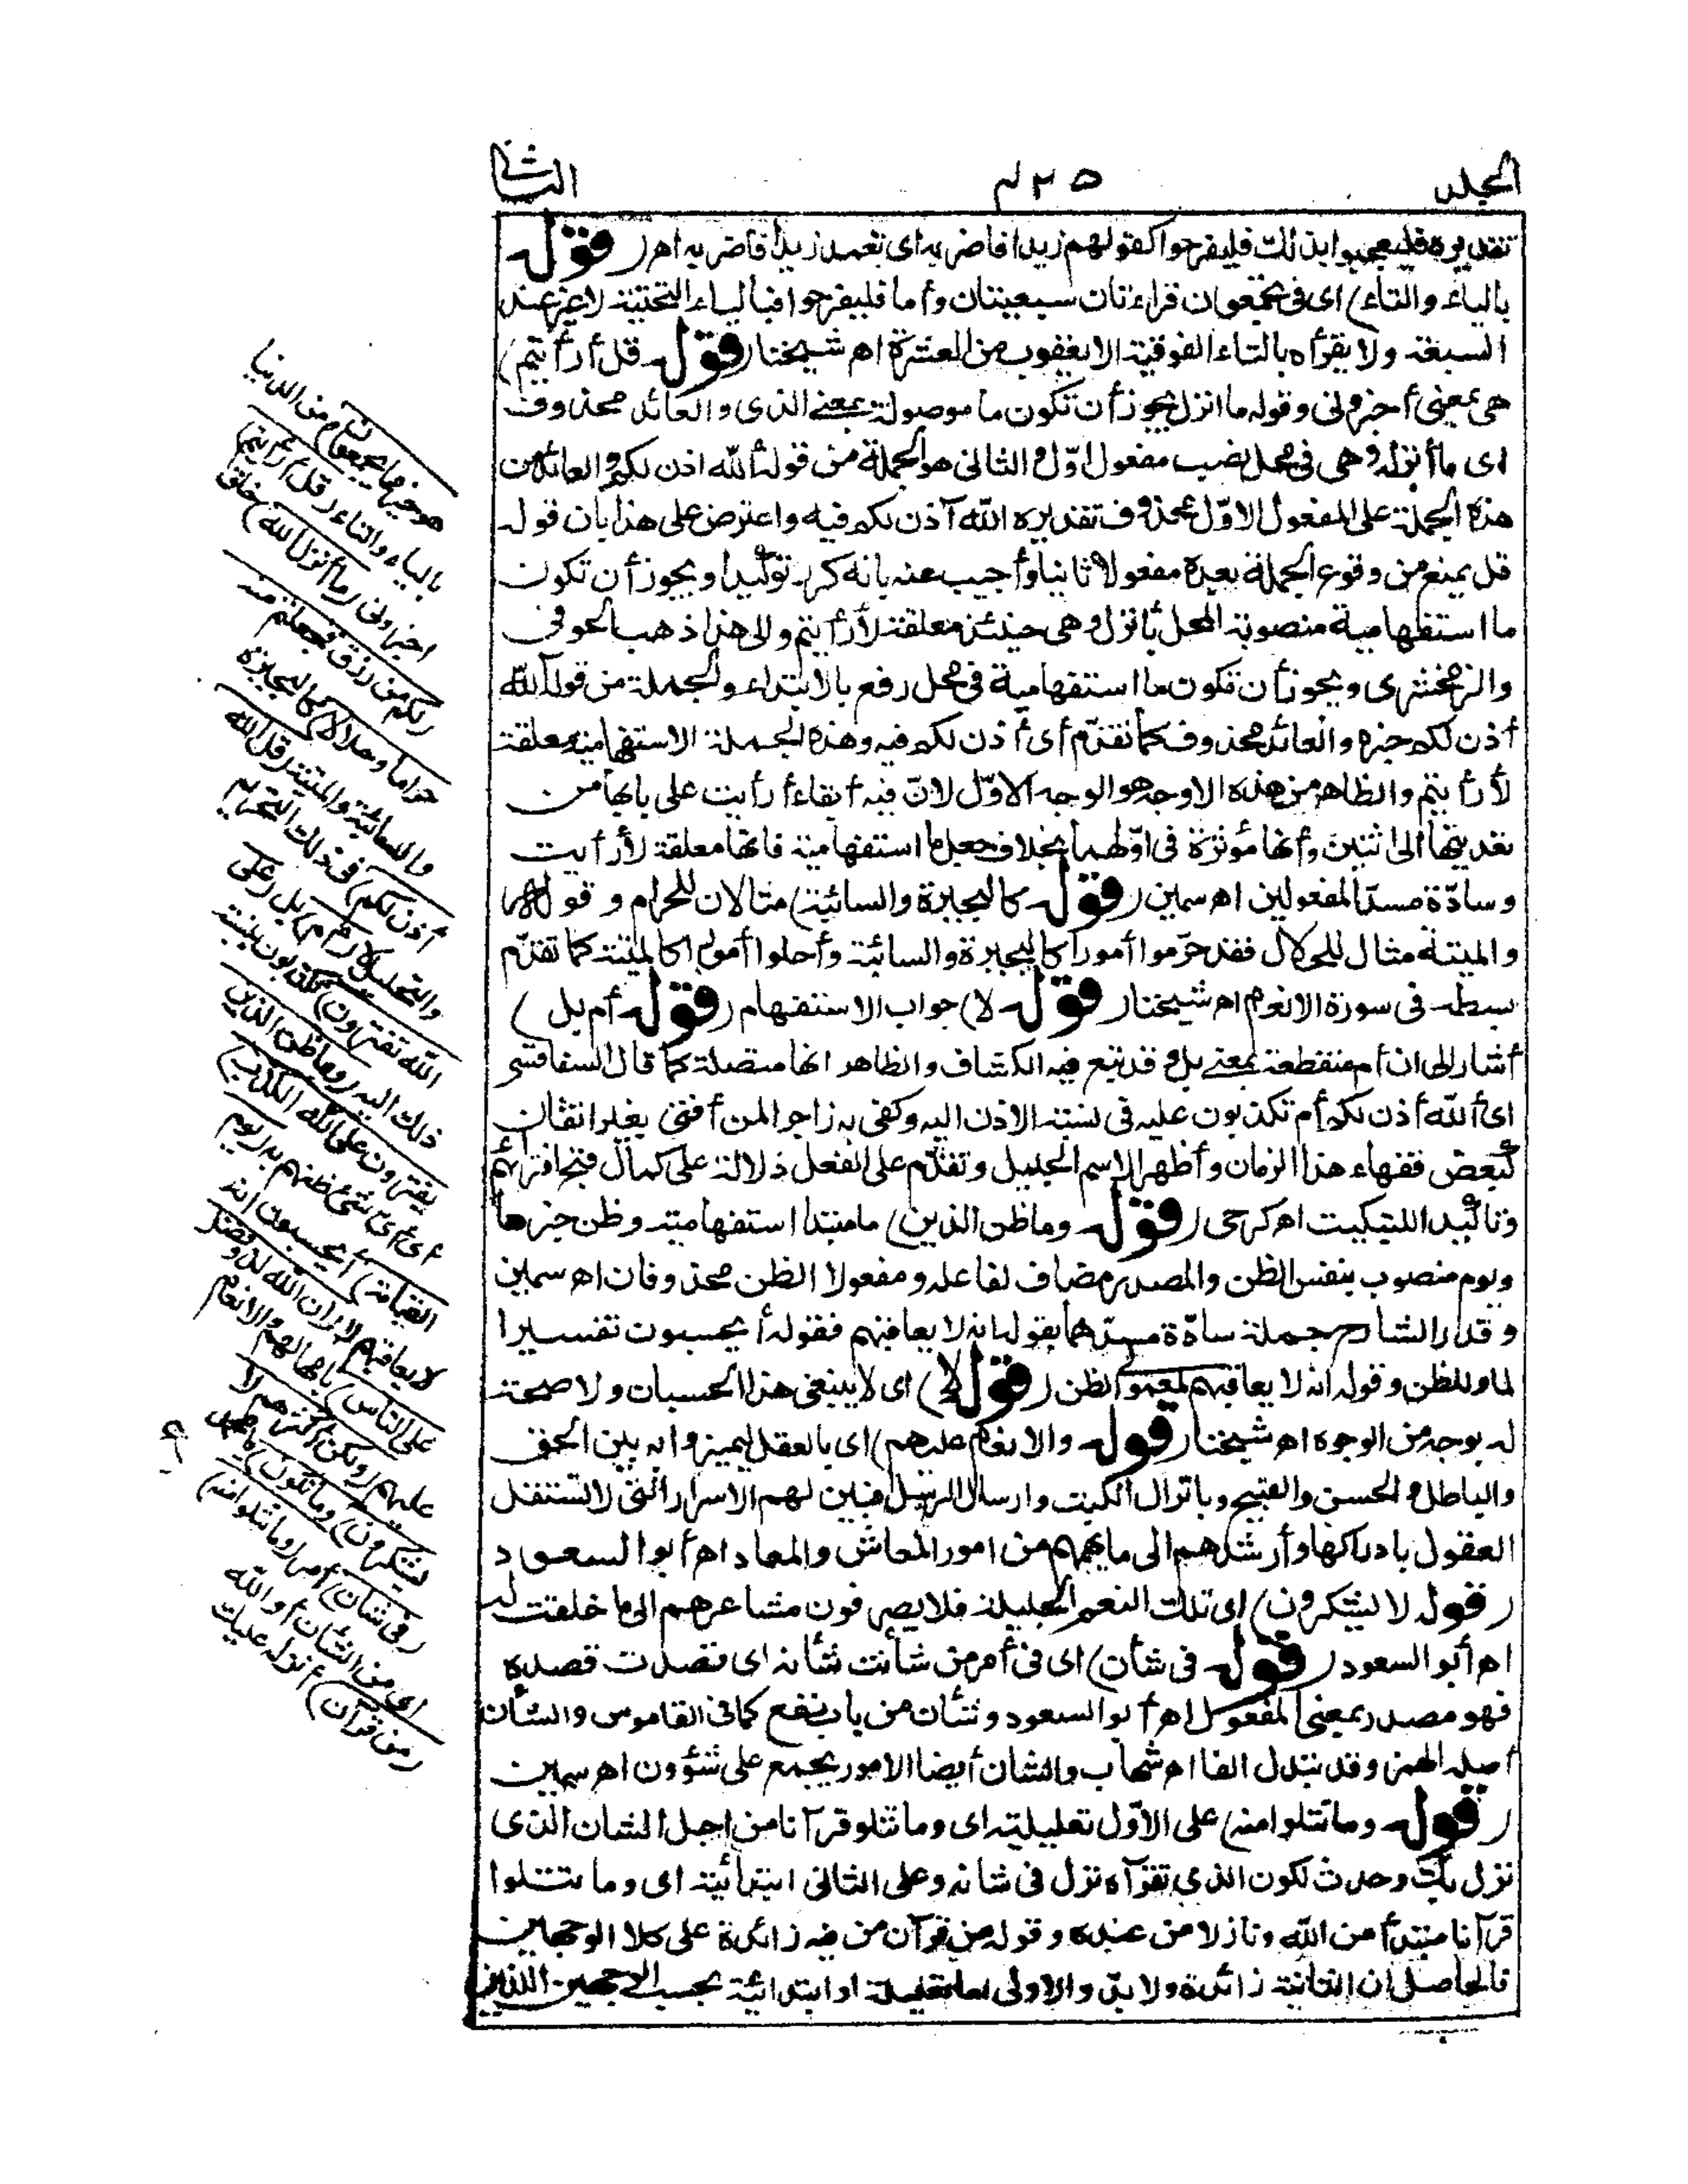 المجلد
٤٢٥
الثانى
تقديره فليعجبوا بذلك فليفرحوا كقولهم زيدا فاضربه اى تعمد زيدا فاضربه اه (قوله
بالياء والتاء) اى فى يجمعون قراءتان سبعيتان وأما فليفرحوا فبالياء التحتية لا غير عند
السبعة ولا يقرأه بالتاء الفوقية الا يعقوب من العشرة اه شيخنا (قوله قل أرأيتم)
هى بمعنى أخبرونى وقوله ما انزل يجوز أن تكون ما موصولة بمعنى الذى والعائد محذوف
اى ما أنزله وهى فى محل نصب مفعول اوّل والثانى هو الجملة من قوله آلله اذن لكم والعائد من
هذه الجملة على المفعول الاوّل محذوف تقديره الله آذن لكم فيه واعترض على هذا بان قوله
قل يمنع من وقوع الجملة بعده مفعولا ثانيا وأجيب عنه بانه كرر توكيدا ويجوز أن تكون
ما استفهامية منصوبة المحل بأنزل وهى حينئذ معلقة لأرأيتم والى هذا ذهب الحوفى
والزمخشرى ويجوز أن تكون ما استفهامية فى محل رفع بالابتداء والجملة من قوله آلله
أذن لكم خبره والعائد محذوف كما تقدّم أى أذن لكم فيه وهذه الجملة الاستفهامية معلقة
لأرأيتم والظاهر من هذه الاوجه هو الوجه الاوّل لانّ فيه ابقاء أرأيت على بابها من
تعديتها الى اثنين وأنها مؤثرة فى اوّلهما بخلاف جعل ما استفهامية فانها معلقة لأرأيت
وسادّة مسدّ المفعولين اه سمين (قوله كالبحيرة والسائبة) مثالان للحرام وقوله
والميتة مثال للحلال فقد حرّموا أمورا كالبحيرة والسائبة وأحلوا أمورا كالميتة كما تقدّم
بسطه فى سورة الانعام اه شيخنا (قوله لا) جواب الاستفهام (قوله أم بل)
أشار الى ان أم منقطعة بمعنى بل وقد تبع فيه الكشاف والظاهر انها متصلة كما قال السفاقسى
اى ألله أذن لكم أم تكذبون عليه فى نسبة الاذن اليه وكفى به زاجرا لمن أفتى بغير اتقان
كبعض فقهاء هذا الزمان وأظهر الاسم الجليل وتقدّم على الفعل دلالة على كمال قبح افترائهم
وتأكيدا للتبكيت اه كرخى (قوله وما ظن الذين) ما مبتدا استفهامية وظن خبرها
ويوم منصوب بنفس الظن والمصدر مضاف لفاعله ومفعولا الظن محذوفان اه سمين
وقدر الشارح جملة سادّة مسدّهما بقوله انه لا يعاقبهم فقوله أيحسبون تفسيرا
لما وللظن وقوله انه لا يعاقبهم لمعمول الظن (قوله لا) اى لا ينبغى هذا الحسبان ولا صحة
له بوجه من الوجوه اه شيخنا (قوله والانعام عليهم) اى بالعقل المميز به بين الحق
والباطل والحسن والقبيح وبانزال الكتب وارسال الرسل فبين لهم الاسرار التى لا تستقل
العقول بادراكها وأرشدهم الى ما يهمهم من امور المعاش والمعاد اه أبو السعود
(قوله لا يشكرون) اى تلك النعم الجليلة فلا يصرفون مشاعرهم الى ما خلقت له
اه أبو السعود (قوله فى شأن) اى فى أمر من شأنت شأنه اى قصدت قصده
فهو مصدر بمعنى المفعول اه أبو السعود وشأن من باب نفع كما فى القاموس والشأن
أصله الهمز وقد تبدل الفا اه شهاب والشان أيضا الامور يجمع على شؤون اه سمين
(قوله وما تتلوا منه) على الاوّل تعليلية اى وما تتلو قرآنا من اجل الشان الذى
نزل بك وحدث لكون الذى تقرأه نزل فى شانه وعلى الثانى ابتدائية اى وما تتلوا
قرآنا مبتدأ من الله ونازلا من عنده وقوله من قرآن من فيه زائدة على كلا الوجهين
فالحاصل ان الثانية زائدة ولا بدّ والاولى اما تعليلية او ابتدائية بحسب الوجهين اللذين
هو خير مما يجمعون) من الدنيا
بالياء والتاء (قل أرأيتم)
اخبرونى (ما أنزل الله) خلق
لكم من رزق فجعلتم منه
حراما وحلالا) كالبحيرة
والسائبة والميتة (قل آلله
أذن لكم) فى ذلك التحريم
والتحليل لا (أم) بل (على
الله تفترون) تكذبون بنسبة
ذلك اليه (وما ظن الذين
يفترون على الله الكذب)
أى أىّ شئ ظنهم به (يوم
القيامة) أيحسبون انه
لا يعاقبهم لا (ان الله لذو فضل
على الناس) بامهالهم والانعام
عليهم (ولكن اكثرهم لا
يشكرون) (وما تكون) يا محمد
(فى شأن) أمر (وما تتلوا منه)
اى من الشان أو الله
(من قرآن) أنزله عليك